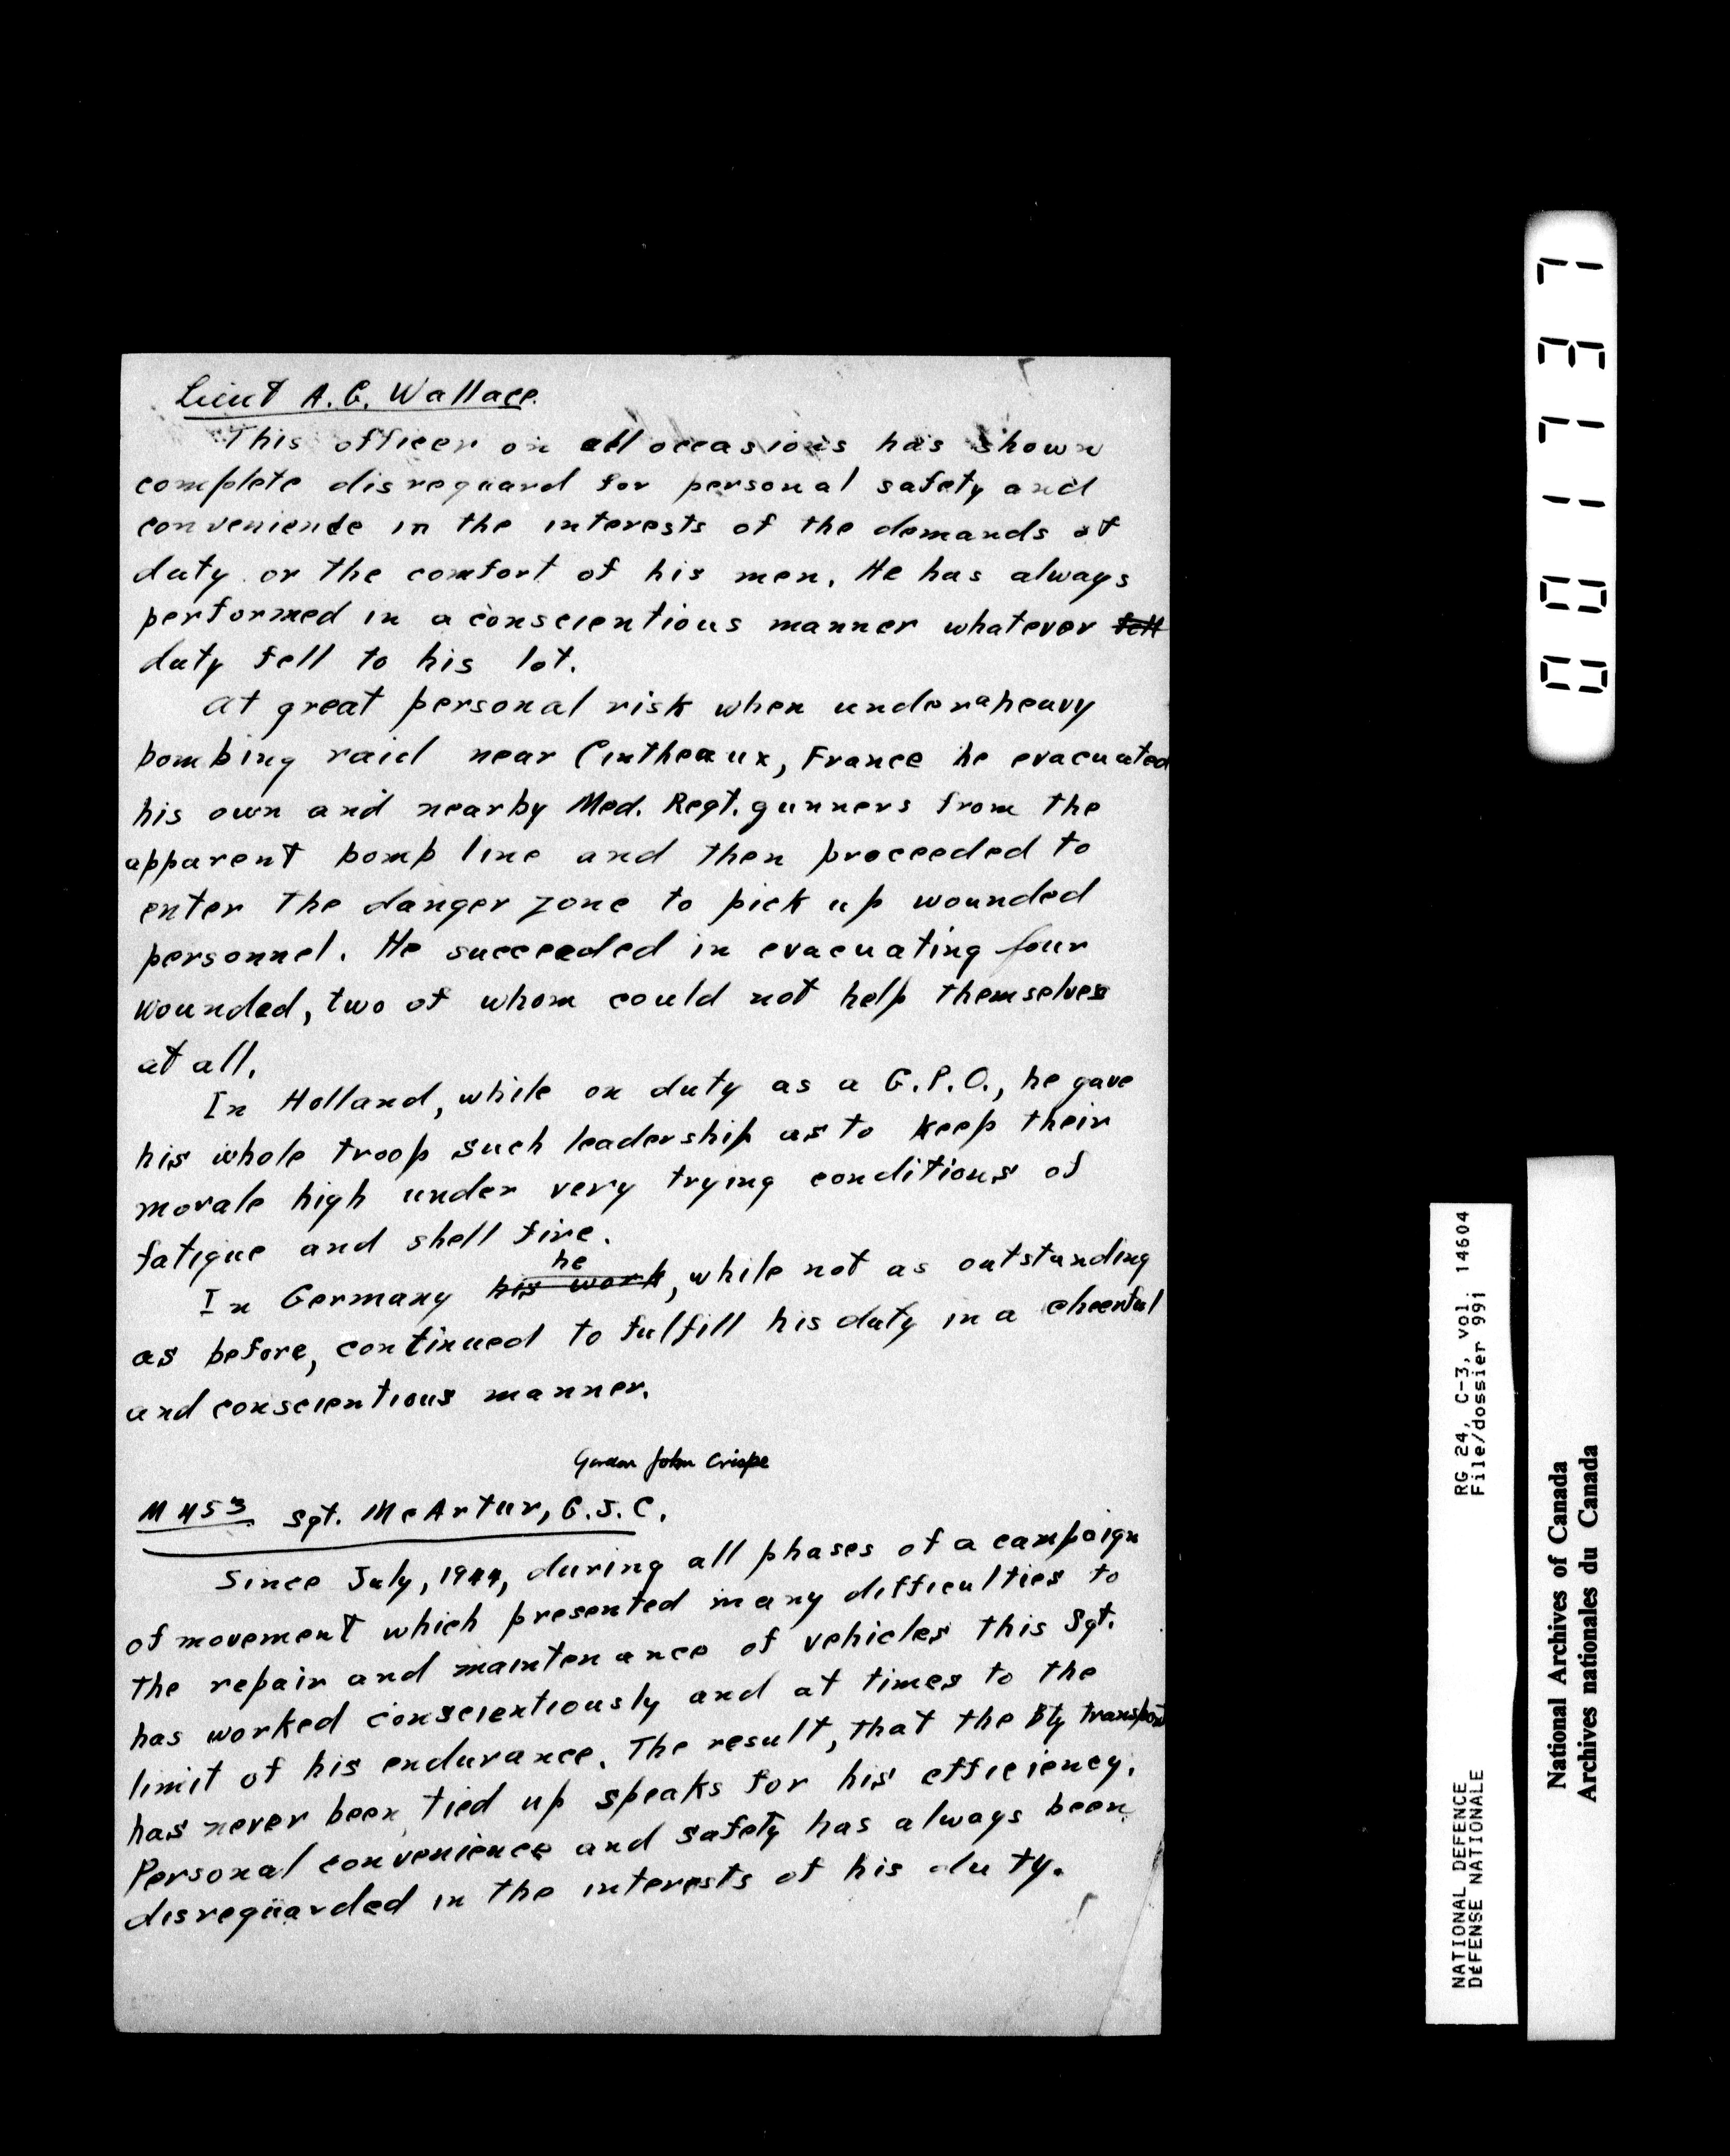 Lieut A. G. Wallace.
This officer on all occasions has shown
complete disreguard for personal safety and
convenience in the interests of the demands of
duty or the comfort of his men. He has always
performed in a conscientious manner whatever fell
duty fell to his lot.
At great personal risk when under a heavy
bombing raid near Cintheaux, France he evacuated
his own and nearby Med. Regt. gunners from the
apparent bomb line and then proceeded to
enter the danger zone to pick up wounded
personnel. He succeeded in evacuating four
wounded, two of whom could not help themselves
at all.
In Holland, while on duty as a G.P.O., he gave
his whole troop such leadership as to keep their
morale high under very trying conditions of
fatigue and shell fire.
he
In Germany his work, while not as outstanding
as before, continued to fulfill his duty in a cheerful
and conscientious manner.
Gordon John Crispe
M 4453 Sgt. McArtur, G.J.C.
Since July, 1944, during all phases of a campaign
of movement which presented many difficulties to
the repair and maintenance of vehicles this Sgt.
has worked conscientiously and at times to the
limit of his endurance. The result, that the Bty transport
has never been tied up speaks for his efficiency.
Personal convenience and safety has always been
disreguarded in the interests of his duty.
NATIONAL DEFENCE RG 24, C-3, vol. 14604
DÉFENSE NATIONALE File/dossier 991
National Archives of Canada
Archives nationales du Canada